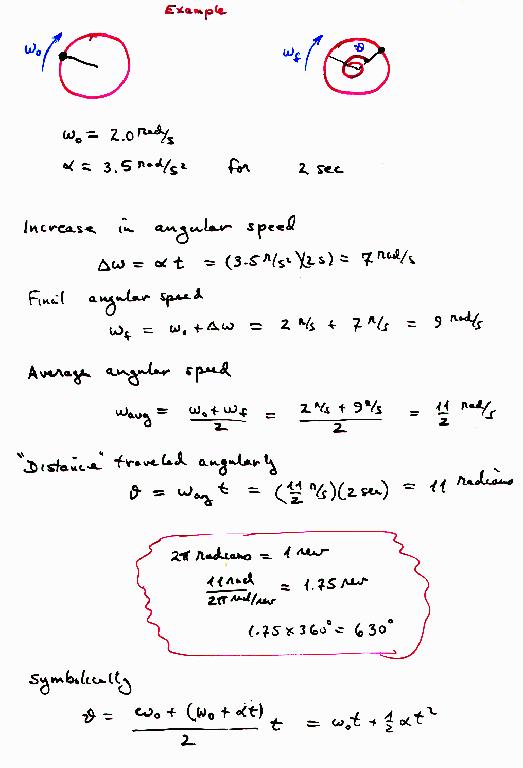 Example
ω₀
ω_f
ϑ
ω₀ = 2.0 rad/s
α = 3.5 rad/s² for 2 sec
Increase in angular speed
Δω = αt = (3.5 r/s²)(2s) = 7 rad/s
Final angular speed
ω_f = ω₀ + Δω = 2 r/s + 7 r/s = 9 rad/s
Average angular speed
ω_avg = (ω₀ + ω_f)/2 = (2 r/s + 9 r/s)/2 = 11/2 rad/s
"Distance" traveled angularly
ϑ = ω_avg t = (11/2 r/s)(2 sec) = 11 radians
2π radians = 1 rev
11 rad / 2π rad/rev = 1.75 rev
1.75 × 360° = 630°
Symbolically
ϑ = (ω₀ + (ω₀ + αt))/2 t = ω₀t + ½ αt²